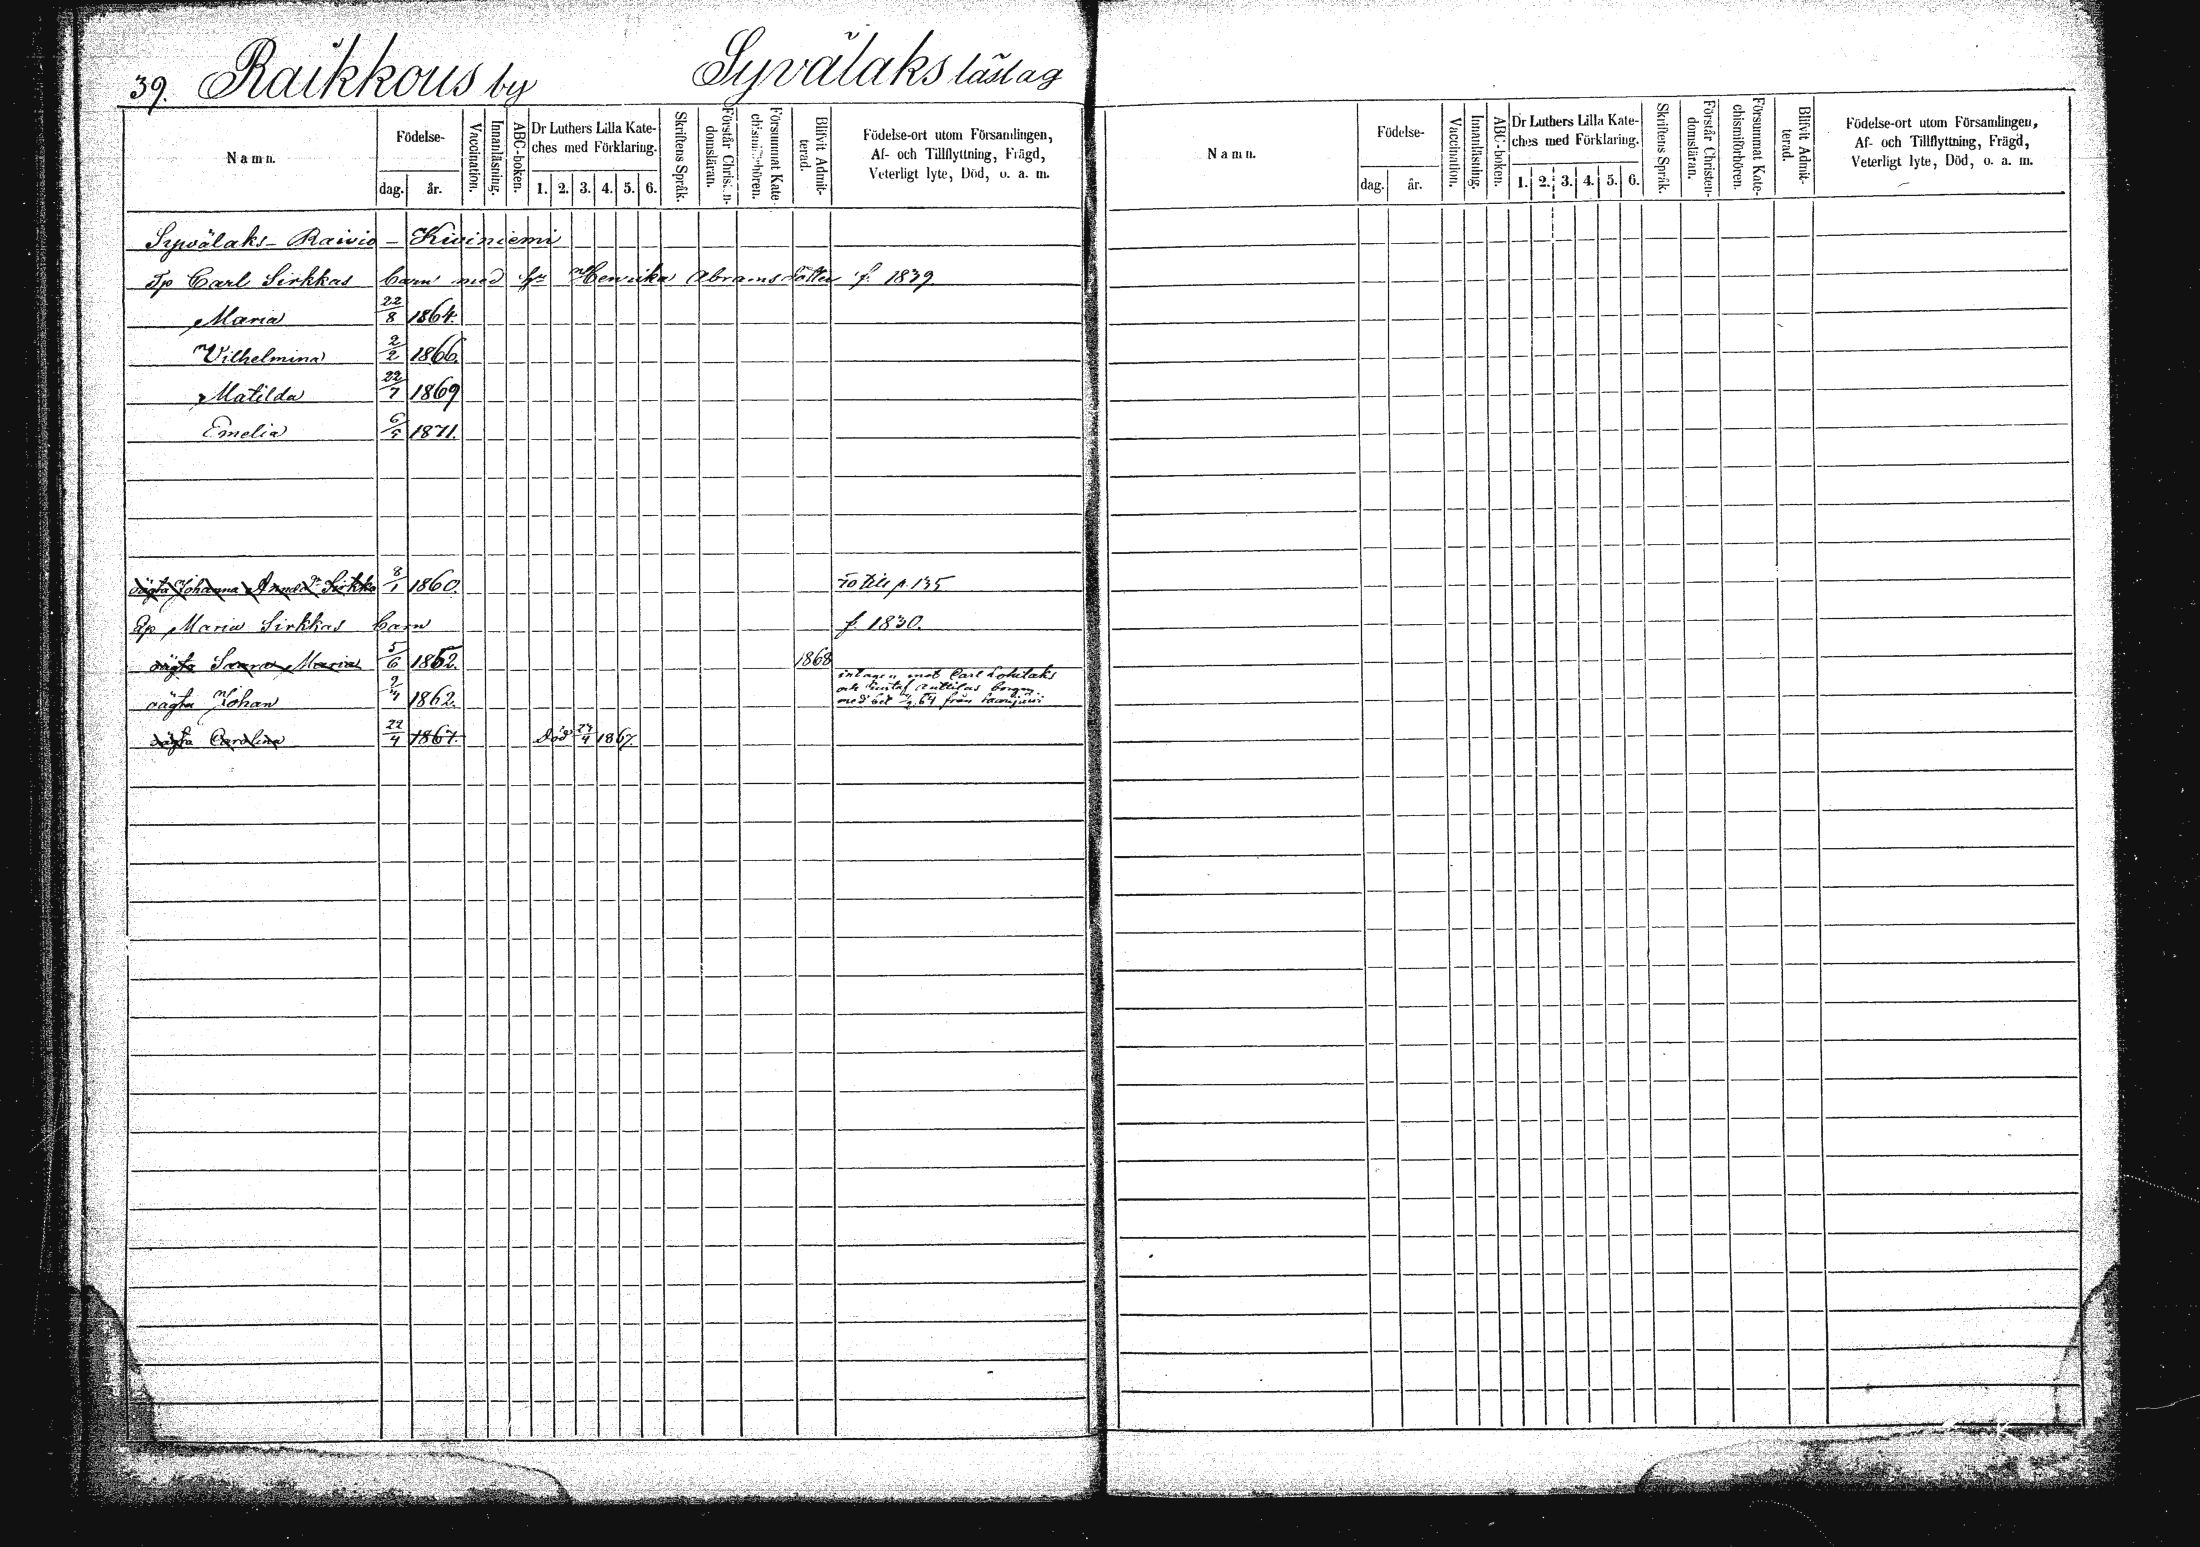 39. Raikkous by Syvälaks läslag
Namn. Födelse- dag. år. Vaccination. Innanläsning. ABC-boken. Dr Luthers Lilla Kate-ches med Förklaring. 1. 2. 3. 4. 5. 6. Skriftens Språk. Förstår Christen-domsläran. Försummat Kate-chismiförhören. Blifvit Admit-terad. Födelse-ort utom Församlingen, Af- och Tillflyttning, Frägd, Veterligt lyte, Död, o. a. m.
Syvälaks - Raivio - Kiviniemi
Tp Carl Sirkkas barn med hu Henrika Abramsdotter f. 1839
Maria 22/8 1864.
Vilhelmina 2/2 1866.
Matilda 22/7 1869
Emelia 6/5 1871.
oägta Johanna Sirkka 8/1 1860. till p. 135
Maria Sirkkas barn f. 1830.
oägta Maria 5/6 1852. 1868
oägta Johan 2/4 1862. mot Carl
från
oägta Carolina 22/4 1867. Död 24/4 1867.
Namn. Födelse- dag. år. Vaccination. Innanläsning. ABC-boken. Dr Luthers Lilla Kate-ches med Förklaring. 1. 2. 3. 4. 5. 6. Skriftens Språk. Förstår Christen-domsläran. Försummat Kate-chismiförhören. Blifvit Admit-terad. Födelse-ort utom Församlingen, Af- och Tillflyttning, Frägd, Veterligt lyte, Död, o. a. m.